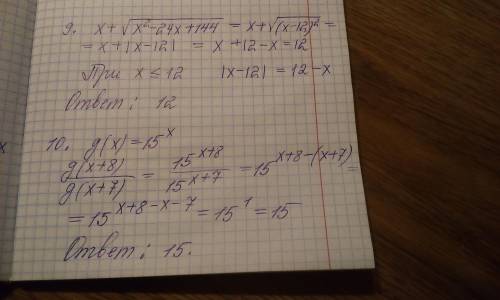 9. x + √(x² - 24x + 144) = x + √((x-12)²) =
= x + |x-12| = x + 12 - x = 12
При x ≤ 12 |x-12| = 12 - x
Ответ: 12
10. g(x) = 15^x
g(x+8)/g(x+7) = 15^(x+8)/15^(x+7) = 15^(x+8-(x+7)) =
= 15^(x+8-x-7) = 15^1 = 15
Ответ: 15.